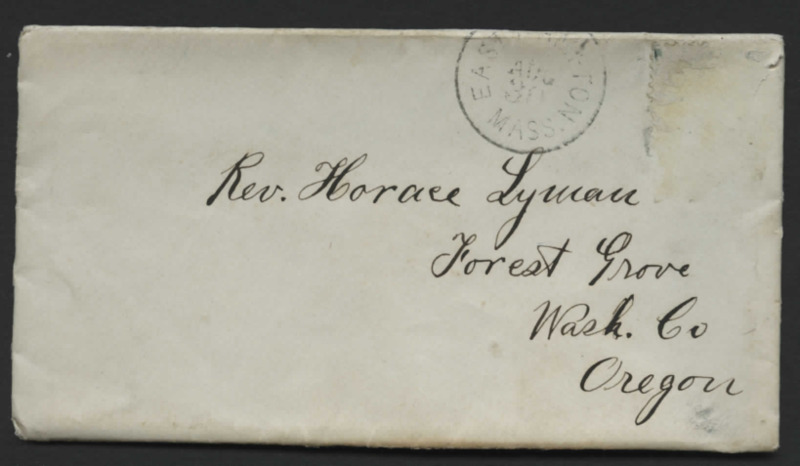 EAS TON
MASS.
AUG
Rev. Horace Lyman
Forest Grove
Wash. Co
Oregon